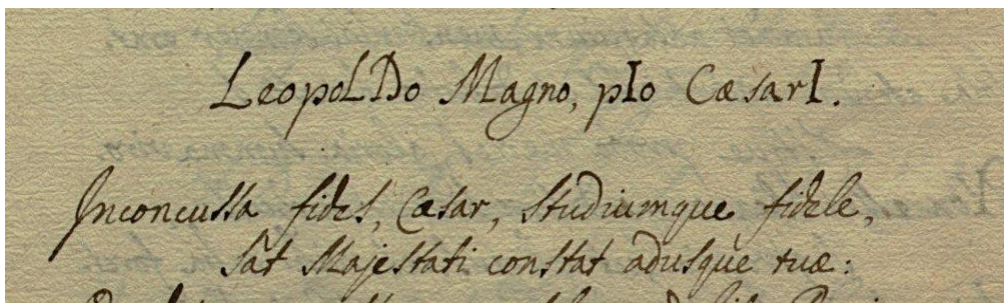 LeopoLDo Magno, pIo CæsarI.
Inconcussa fides, Cæsar, studiumque fidele,
sāt Majestati constat adusque tuæ: